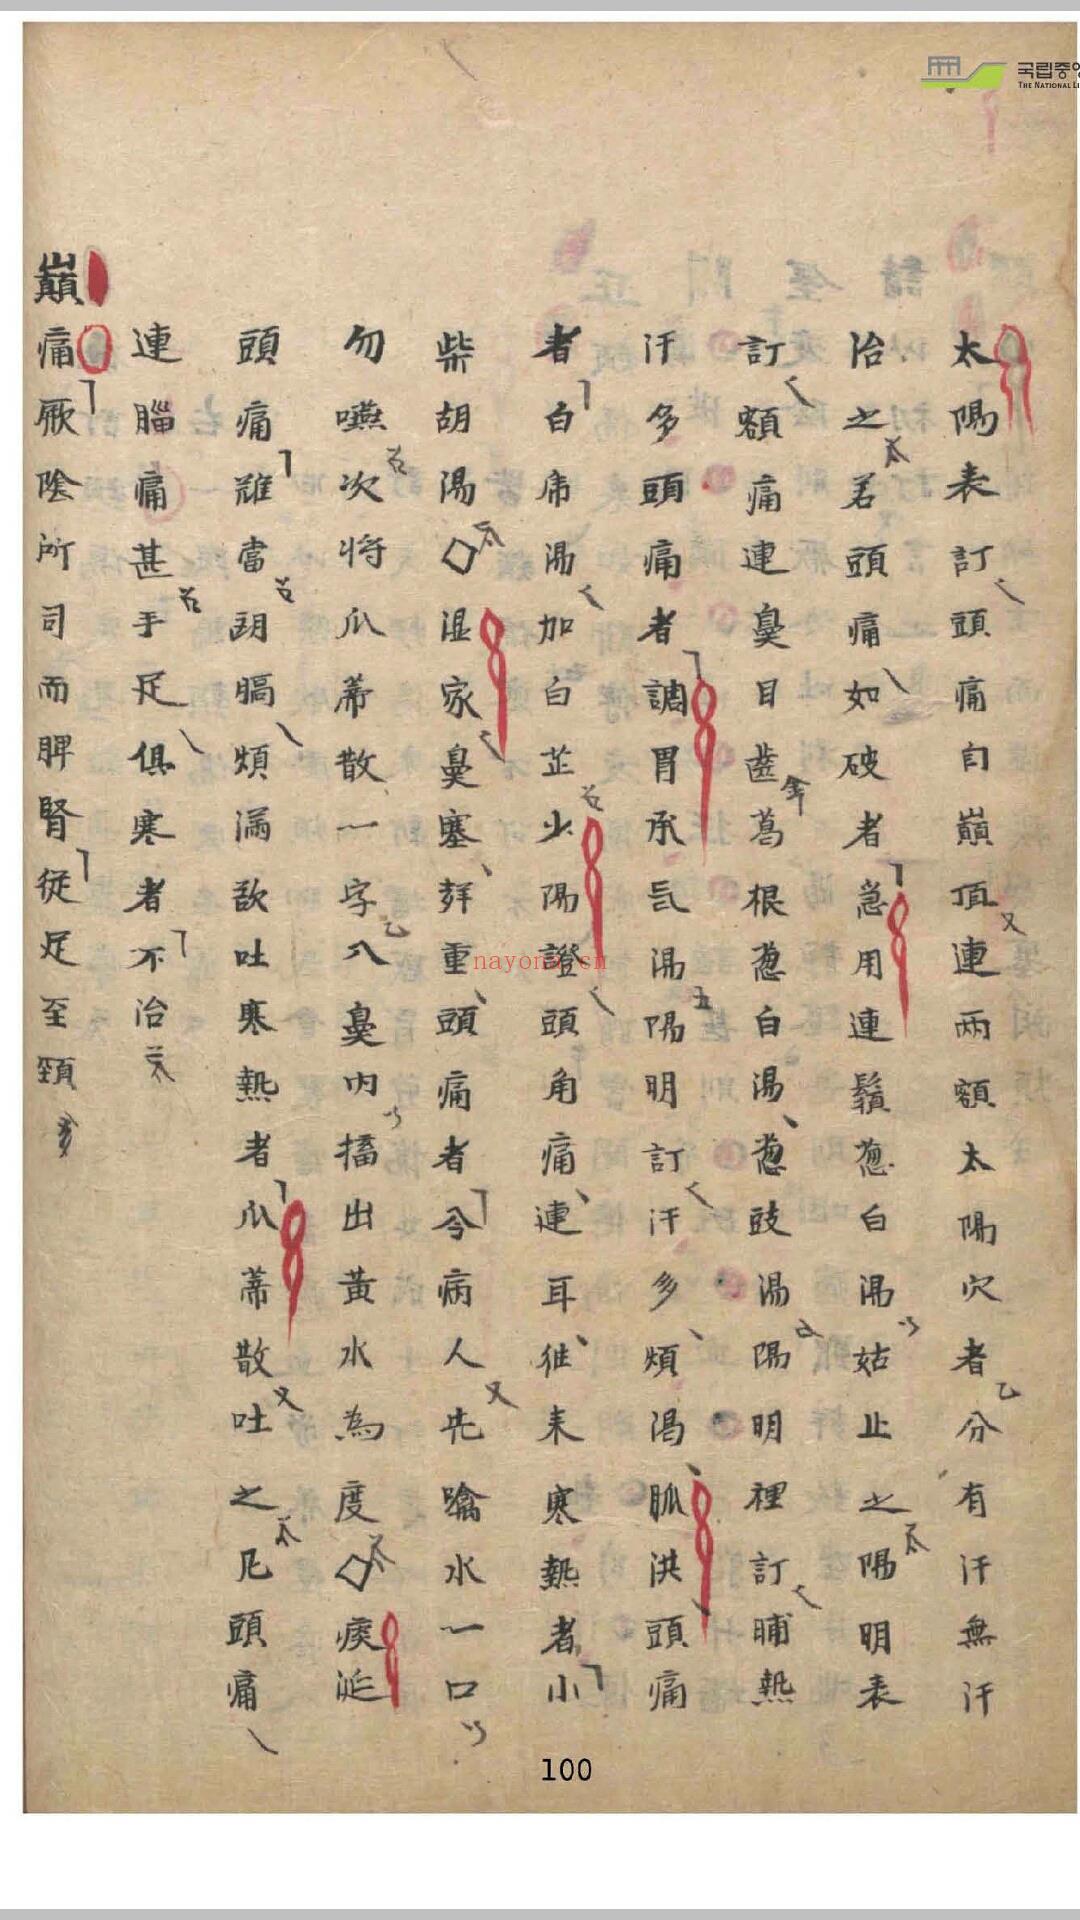 국립중앙
THE NATIONAL LI
太陽表訂頭痛自巔頂連兩額太陽穴者分有汗無汗
治之若頭痛如破者急用連鬚葱白湯姑止之陽明表
訂額痛連鼻目齒葛根葱白湯葱豉湯陽明裡訂晡熱
汗多頭痛者調胃承氣湯陽明訂汗多煩渴脈洪頭痛
者白席湯加白芷少陽證頭角痛連耳徃来寒熱者小
柴胡湯湿家鼻塞聲重頭痛者令病人先噙水一口
勿嚥次将爪蒂散一字入鼻內搐出黃水為度痰涎
頭痛雖當胸膈煩滿欲吐寒熱者爪蒂散吐之凡頭痛
連腦痛甚手足俱寒者不治
巔痛厥陰所司而脾腎從足至頸
nayona.cn
100